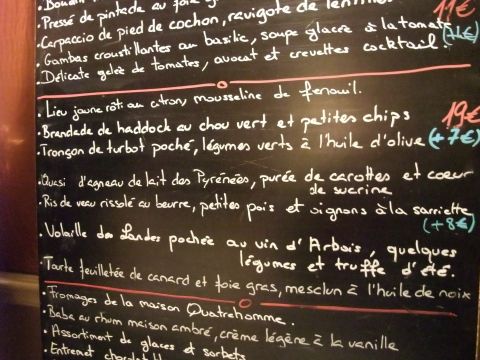 . Boudin
. Pressé de pintade au foie
. Carpaccio de pied de cochon, ravigote de lentilles 11€
. Gambas croustillantes au basilic, soupe glacée à la tomate
. Délicate gelée de tomates, avocat et crevettes cocktail.
. Lieu jaune rôti au citron, mousseline de fenouil.
. Brandade de haddock au chou vert et petites chips 19€
. Tronçon de turbot poché, légumes verts à l'huile d'olive (+7€)
. Quasi d'agneau de lait des Pyrénées, purée de carottes et coeur
de sucrine
. Ris de veau rissolé au beurre, petites pois et oignons à la sarriette
(+8€)
. Volaille des Landes pochée au vin d'Arbois, quelques
légumes et truffe d'été.
. Tarte feuilletée de canard et foie gras, mesclun à l'huile de noix
. Fromages de la maison Quatrehomme.
. Baba au rhum maison ambré, crème légère à la vanille
. Assortiment de glaces et sorbets
. Entremet